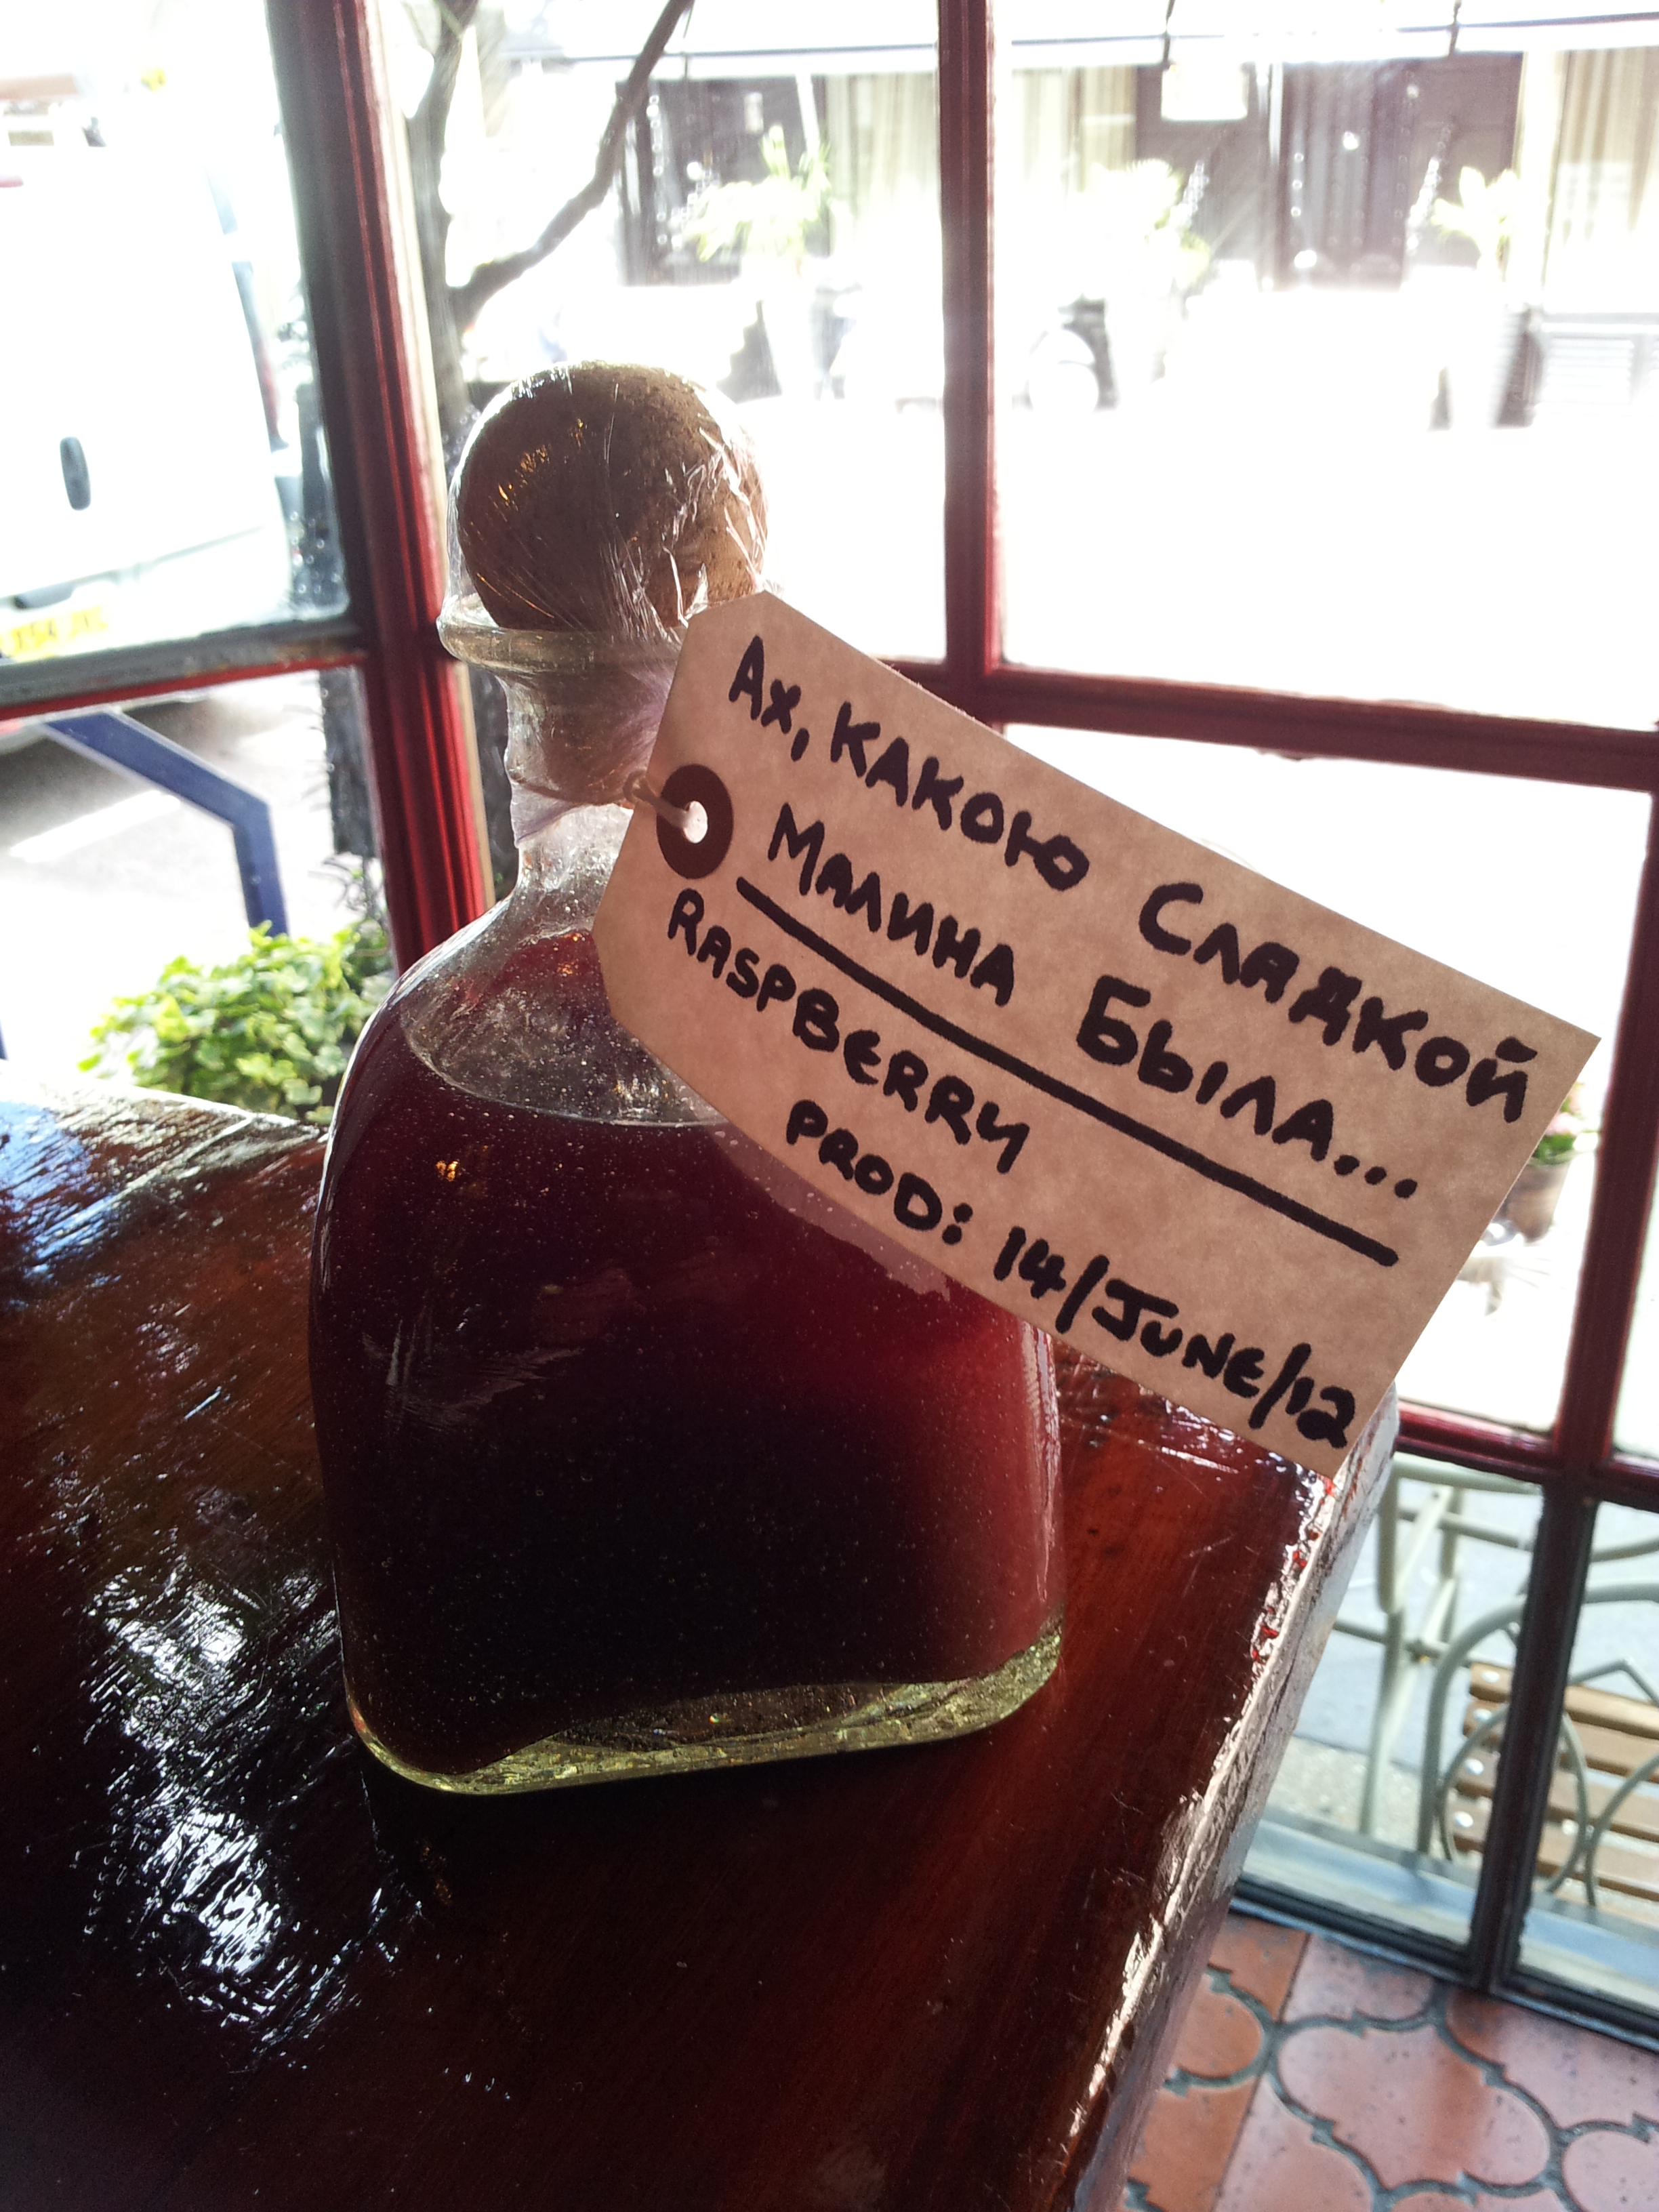 Ах, какою Сладкой
Малина Была...
RASPBERRY
PROD: 14/JUNE/12